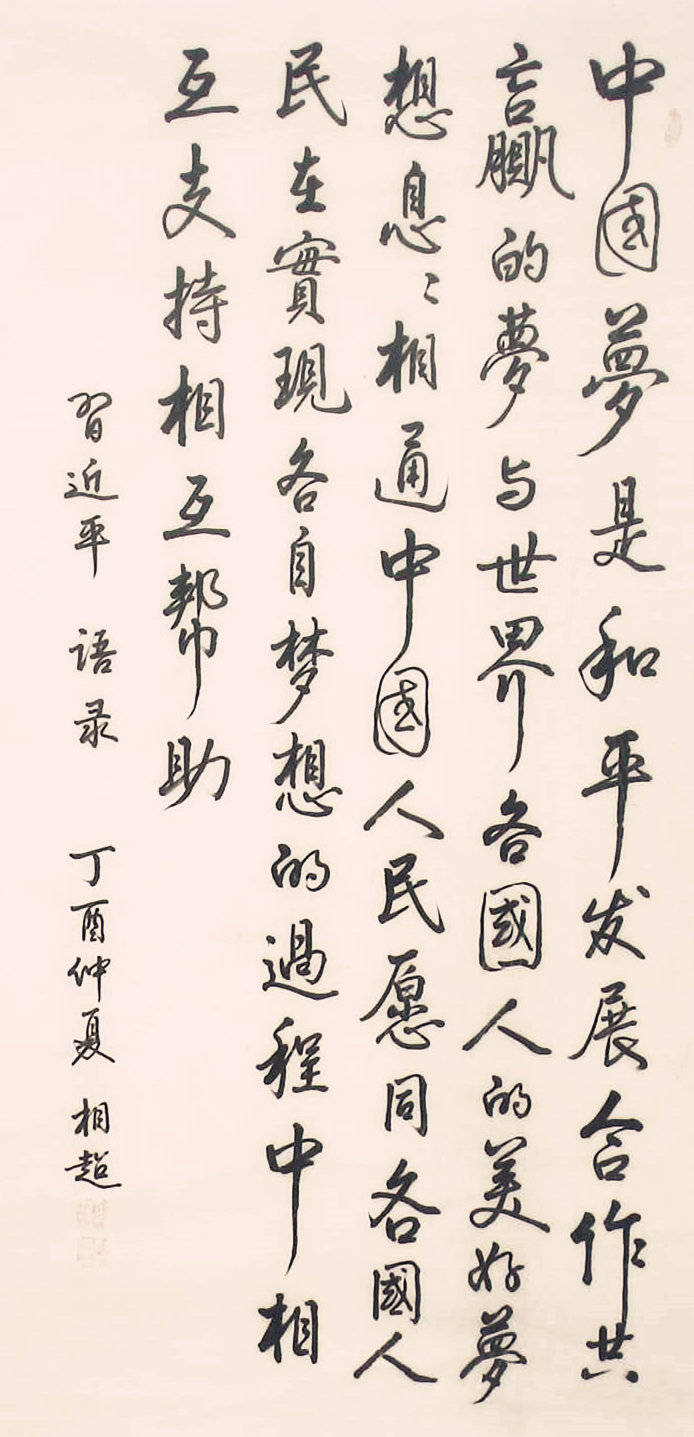 中国夢是和平发展合作共
赢的夢与世界各國人的美好夢
想息〻相通中国人民愿同各國人
民在實現各自梦想的過程中相
互支持相互帮助
習近平 语录 丁酉仲夏 相超